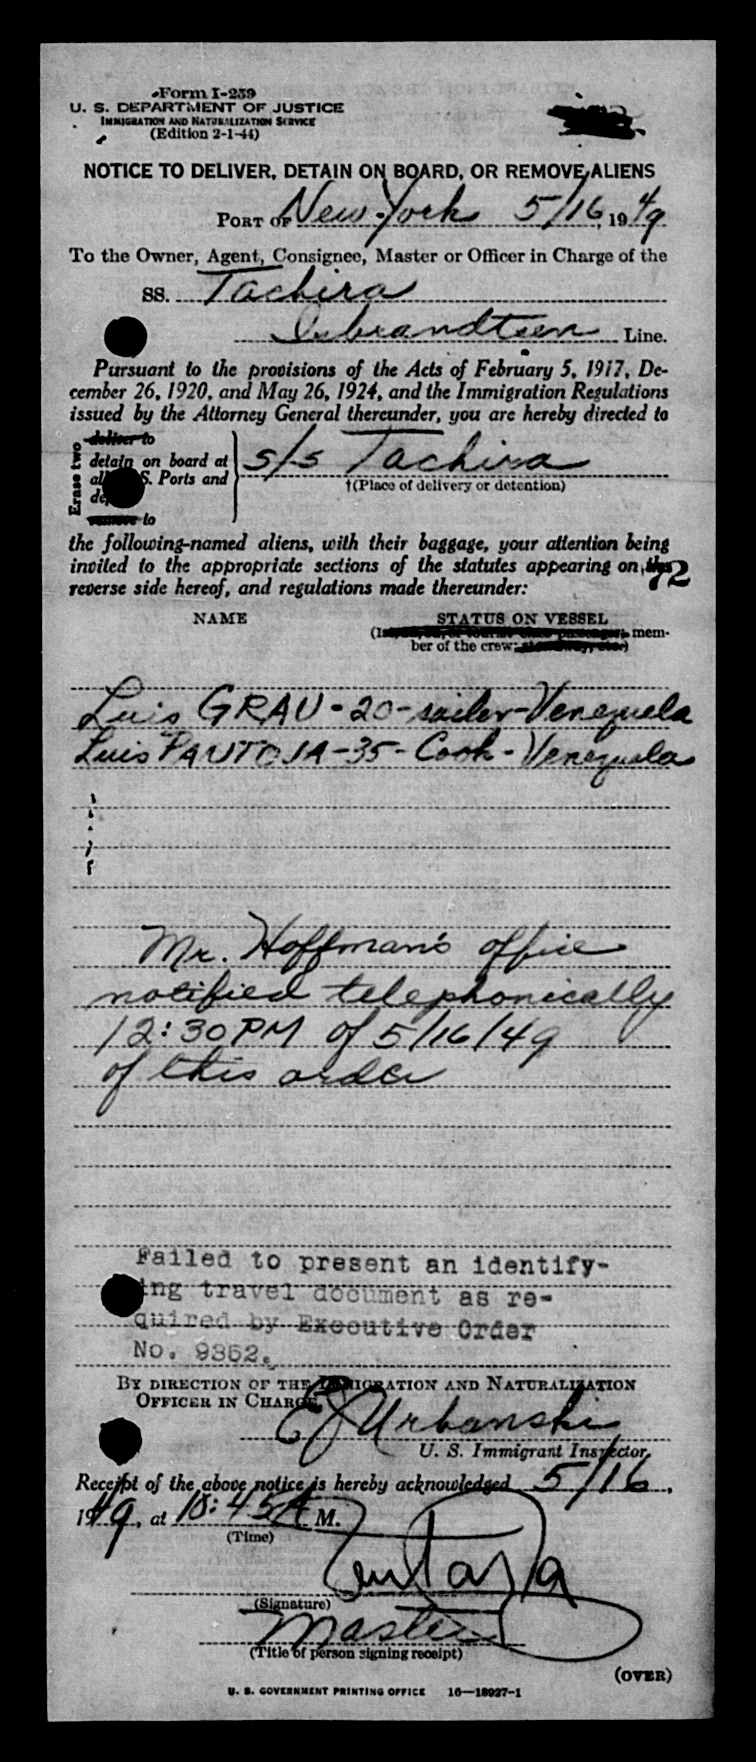 Form I-259
U. S. DEPARTMENT OF JUSTICE
IMMIGRATION AND NATURALIZATION SERVICE
(Edition 2-1-44)
NOTICE TO DELIVER, DETAIN ON BOARD, OR REMOVE ALIENS
PORT OF New York 5/16, 1949
To the Owner, Agent, Consignee, Master or Officer in Charge of the
SS. Tachira
Isbrandtsen Line.
Pursuant to the provisions of the Acts of February 5, 1917, De-
cember 26, 1920, and May 26, 1924, and the Immigration Regulations
issued by the Attorney General thereunder, you are hereby directed to
Erase two
deliver to
detain on board at
all U. S. Ports and
remove to
s/s Tachira
†(Place of delivery or detention)
the following-named aliens, with their baggage, your attention being
invited to the appropriate sections of the statutes appearing on the
reverse side hereof, and regulations made thereunder:
72
NAME STATUS ON VESSEL
mem-
ber of the crew;
Luis GRAU - 20 - sailor - Venezuela
Luis PANTOJA - 35 - Cook - Venezuela
Mr. Hoffman's office
notified telephonically
12:30 PM of 5/16/49
of this order
Failed to present an identify-
ing travel document as re-
quired by Executive Order
No. 9352.
BY DIRECTION OF THE IMMIGRATION AND NATURALIZATION
OFFICER IN CHARGE,
E J Urbanski
U. S. Immigrant Inspector.
Receipt of the above notice is hereby acknowledged 5/16,
1949, at 10:45 A M.
(Time)
(Signature)
Master
(Title of person signing receipt)
(OVER)
U. S. GOVERNMENT PRINTING OFFICE 16—18927-1